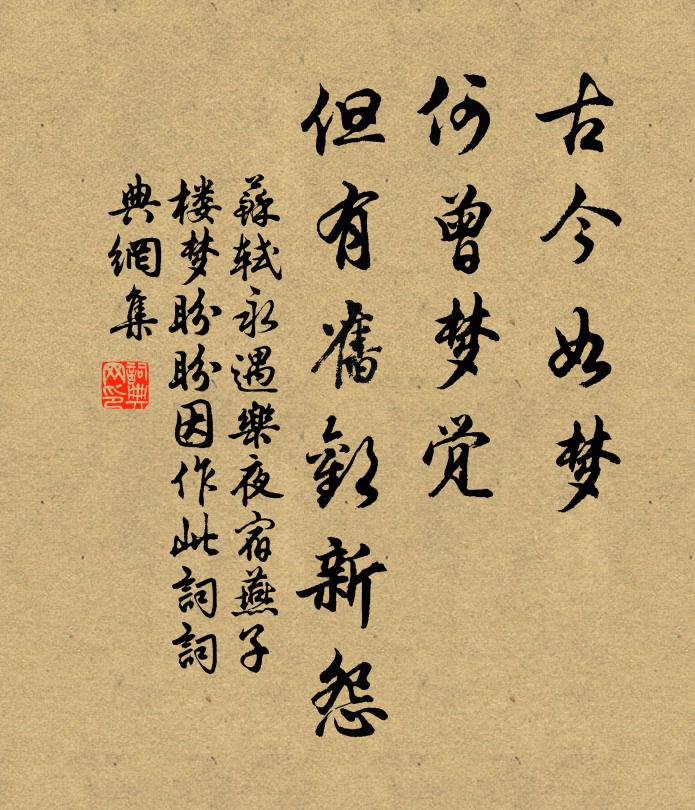 古今如梦
何曾梦觉
但有舊歡新怨
蘇軾永遇樂夜宿燕子
楼梦盼盼因作此詞詞
典網集
詞典
网印